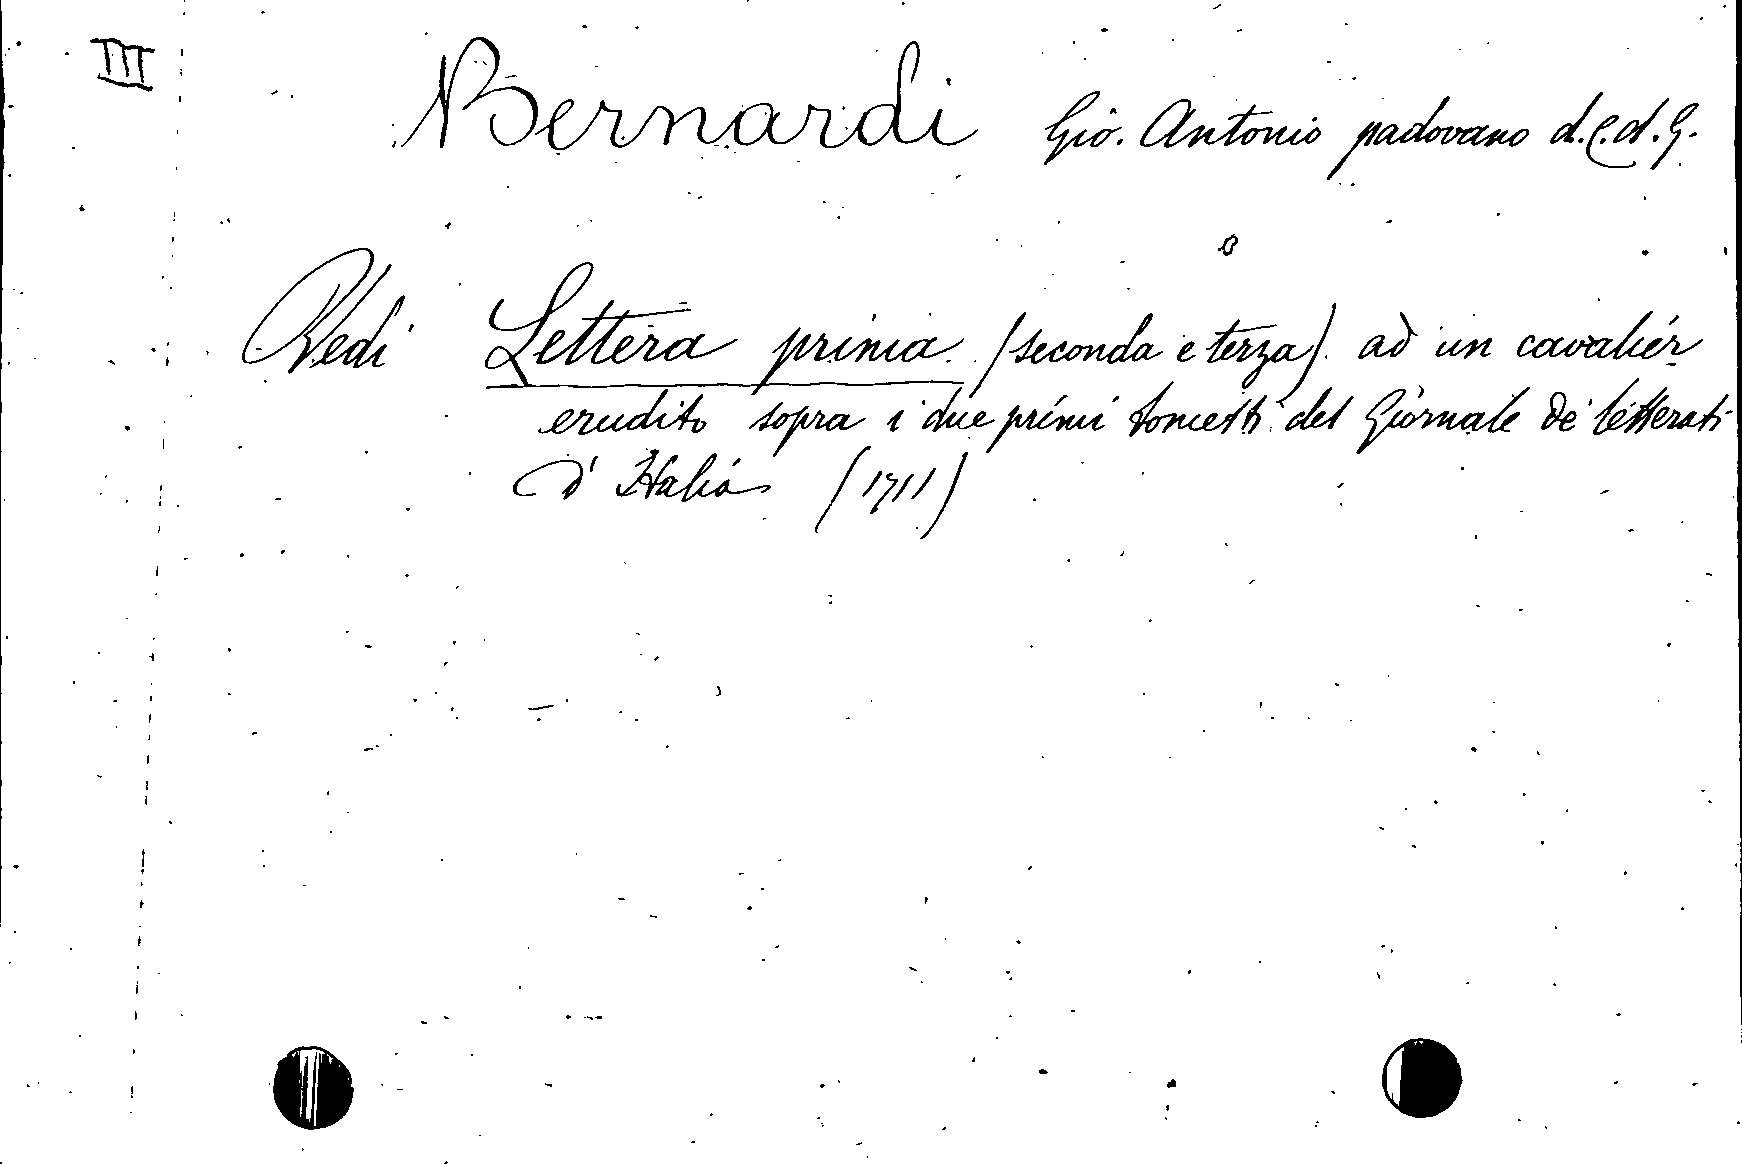 III
Bernardi Gio. Antonio padovano d.C.d.G.
Vedi Lettera prima (seconda e terza) ad un cavalier
erudito sopra i due primi tometti del Giornale de' letterati
d'Italia (1711)